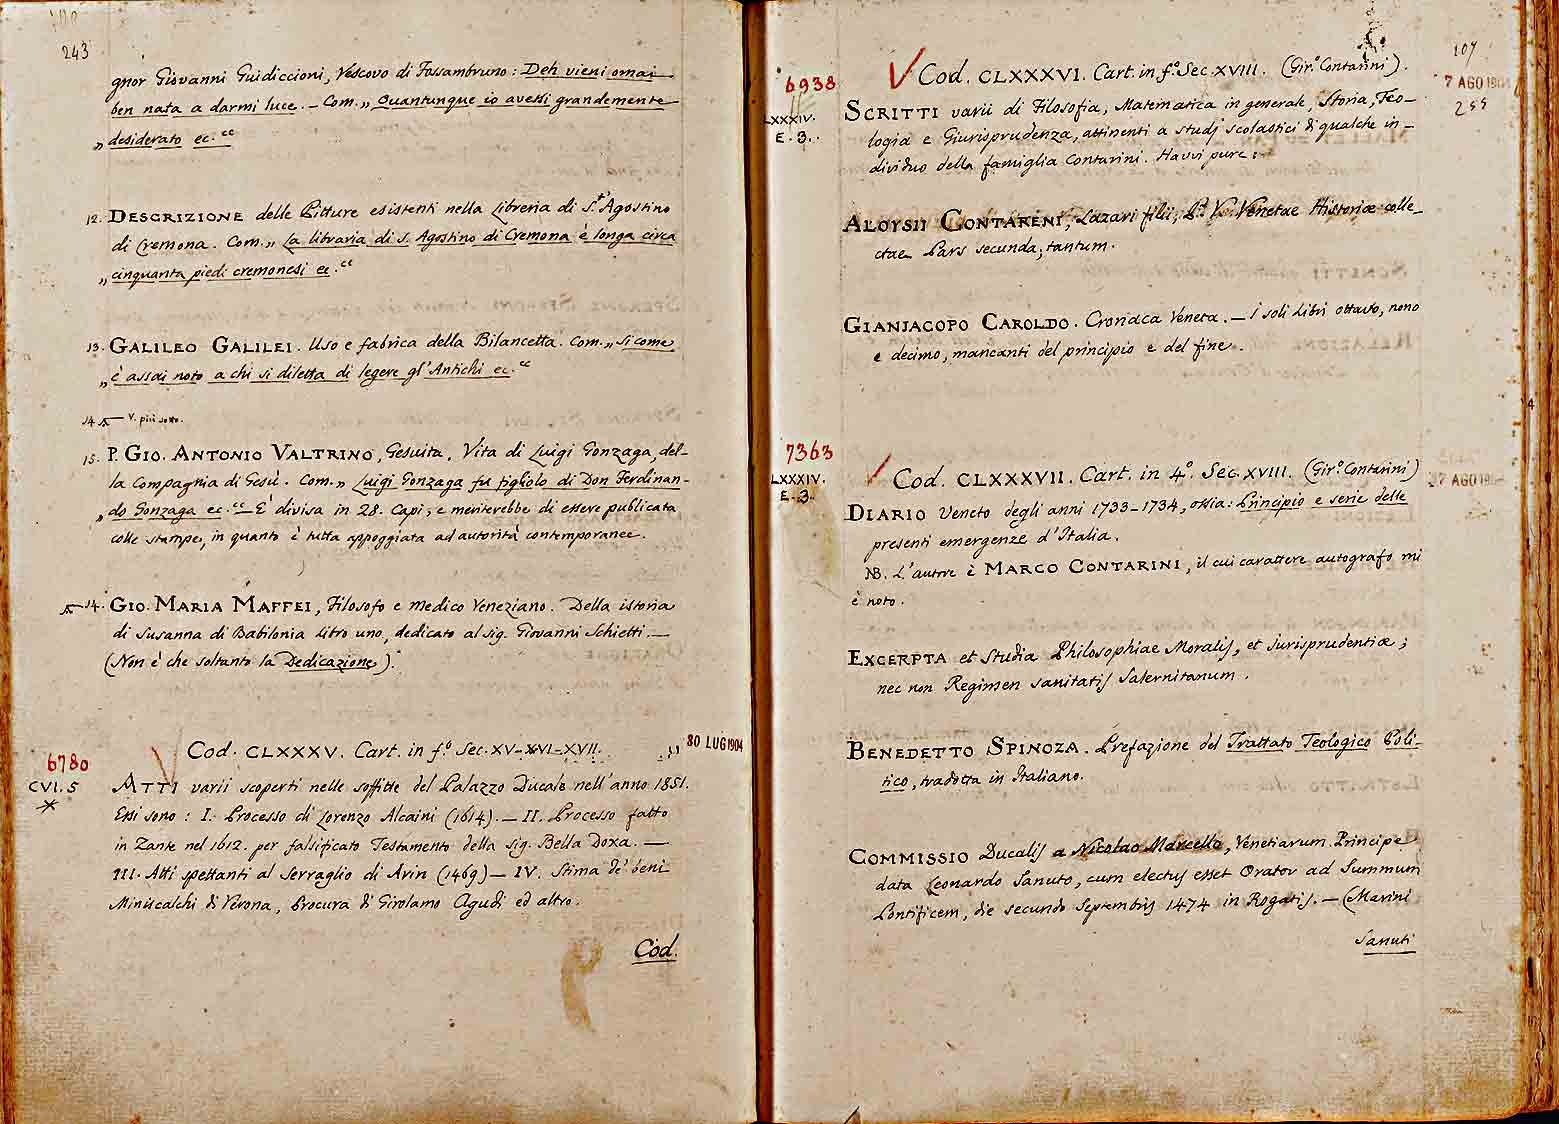 243
gnor Giovanni Guidiccioni, Vescovo di Fossambruno: Deh vieni omai
ben nata a darmi luce. – Com. „ Quantunque io avessi grandemente
„ desiderato ec. ec
12. DESCRIZIONE delle Pitture esistenti nella Libreria di S.t Agostino
di Cremona. Com. „ La libraria di S. Agostino di Cremona è longa circa
„ cinquanta piedi cremonesi ec. ec
13. GALILEO GALILEI. Uso e fabrica della Bilancetta. Com. „ Sicome
„ è assai noto a chi si diletta di legere gl'Antichi ec. ec
14 V. più sotto.
15. P. GIO. ANTONIO VALTRINO, Gesuita, Vita di Luigi Gonzaga, del-
la Compagnia di Gesù. Com. „ Luigi Gonzaga fu figliolo di Don Ferdinan-
„ do Gonzaga ec. ec È divisa in 28. Capi, e meriterebbe di essere publicata
colle stampe, in quanto è tutta appoggiata ad autorità contemporanee.
14. GIO. MARIA MAFFEI, Filosofo e medico Veneziano. Della istoria
di Susanna di Babilonia Libro uno, dedicato al sig. Giovanni Schietti. —
(Non è che soltanto la Dedicazione).
Cod. CLXXXV. Cart. in f.o Sec. XV-XVI-XVII.
30 LUG 1904
6780
CVI. 5
ATTI varii scoperti nelle soffitte del Palazzo Ducale nell'anno 1851.
Essi sono: I. Processo di Lorenzo Alcaini (1614). — II. Processo fatto
in Zante nel 1612. per falsificato Testamento della sig. Bella Doxa. —
III. Atti spettanti al Serraglio di Avin (1469) — IV. Stima de' beni
Miniscalchi di Verona, Procura di Girolamo Agudi ed altro.
Cod.
107
7 AGO 190
255
6938
LXXXIV.
E. 3.
Cod. CLXXXVI. Cart. in f.o Sec. XVIII. (Gir.o Contarini).
SCRITTI varii di Filosofia, Matematica in generale, Storia, Teo-
logia e Giurisprudenza, attinenti a studj scolastici di qualche in-
dividuo della famiglia Contarini. Havvi pure:
ALOYSII CONTARENI, Lazari filii, Venetae Historiae colle-
ctae Pars secunda, tantum.
GIANJACOPO CAROLDO. Cronaca Veneta. — I soli Libri ottavo, nono
e decimo, mancanti del principio e del fine.
7363
LXXXIV.
E. 3.
Cod. CLXXXVII. Cart. in 4.o Sec. XVIII. (Gir.o Contarini)
27 AGO 190
DIARIO Veneto degli anni 1733-1734, ossia: Principio e serie delle
presenti emergenze d'Italia.
NB. L'autore è MARCO CONTARINI, il cui carattere autografo mi
è noto.
EXCERPTA et Studia Philosophiae Moralis, et jurisprudentiæ;
nec non Regimen sanitatis Salernitanum.
BENEDETTO SPINOZA. Prefazione del Trattato Teologico Poli-
tico, tradotta in Italiano.
COMMISSIO Ducalis a Nicolao Marcello, Venetiarum Principe
data Leonardo Sanuto, cum electus esset Orator ad Summum
Pontificem, die secundo Septembris 1474 in Rogatis. — (Marini
Sanuti